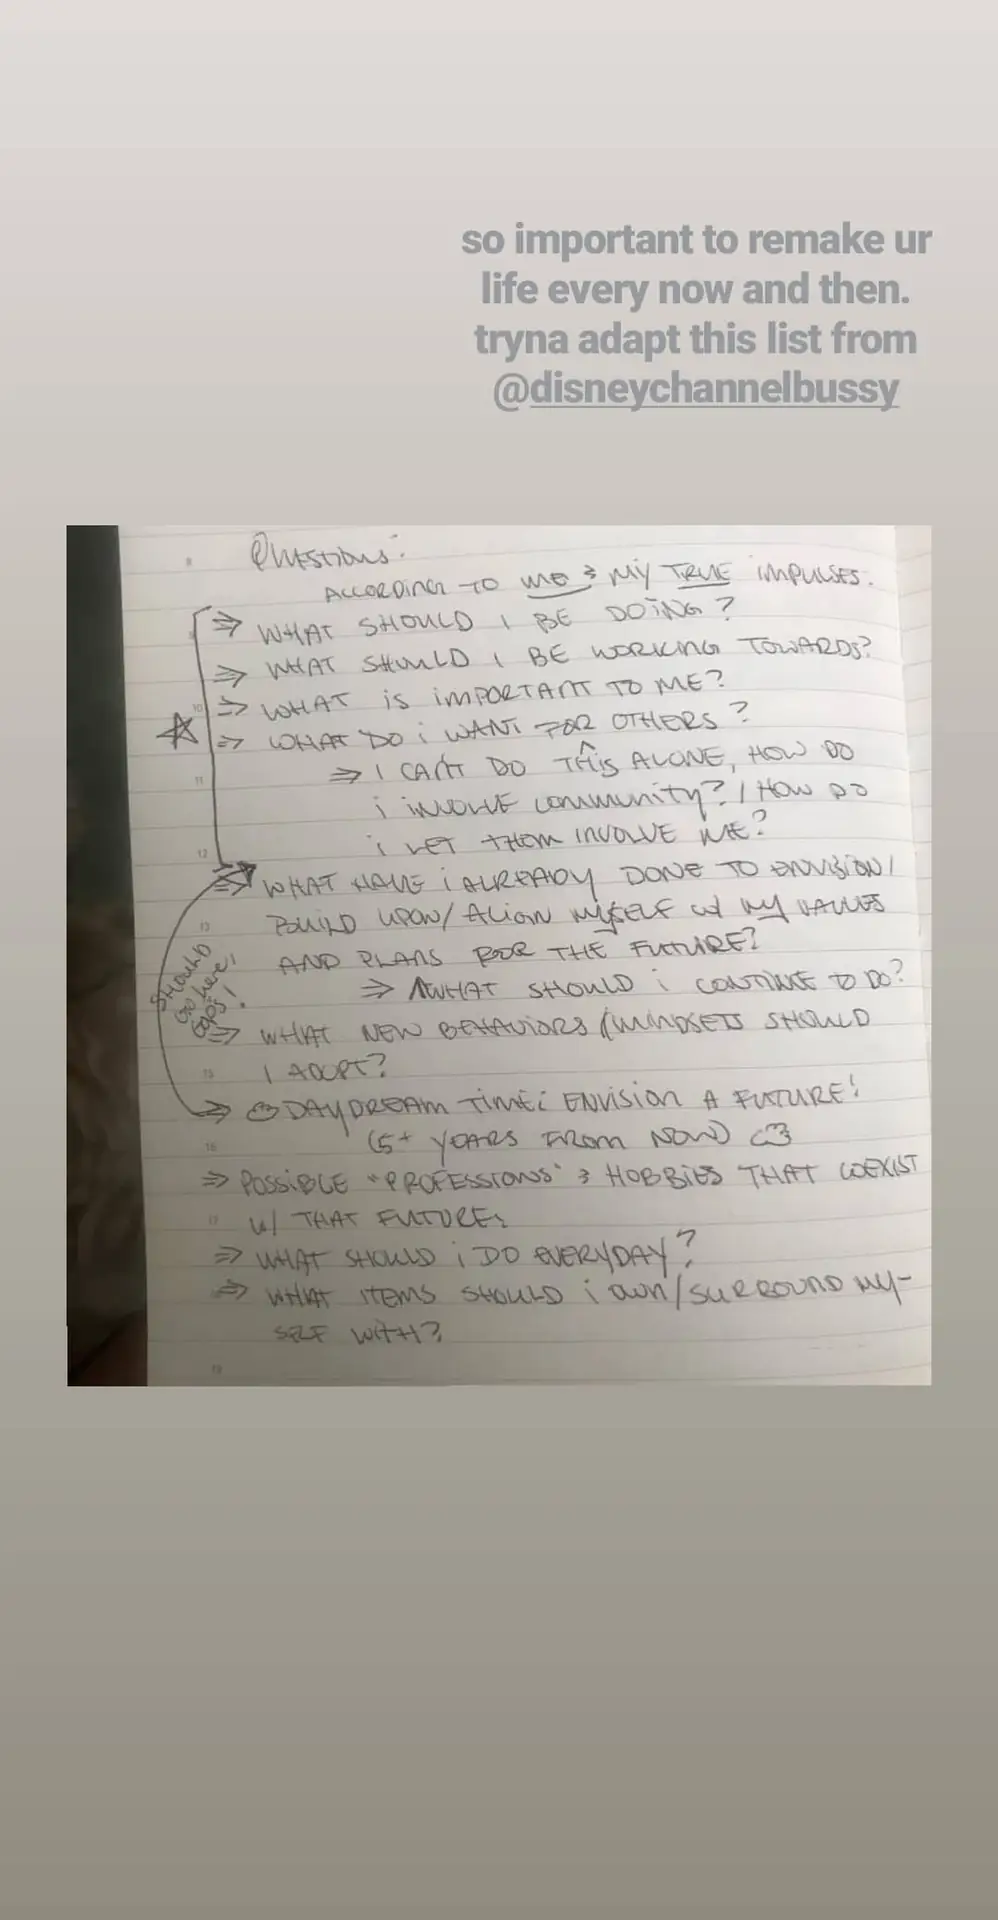 so important to remake ur
life every now and then.
tryna adapt this list from
@disneychannelbussy
Questions:
ACCORDING TO ME & MY TRUE IMPULSES:
⇒ WHAT SHOULD I BE DOING?
⇒ WHAT SHOULD I BE WORKING TOWARDS?
⇒ WHAT IS IMPORTANT TO ME?
⇒ WHAT DO i WANT FOR OTHERS?
⇒ I CAN'T DO THiS ALONE, HOW DO
i INVOLVE COMMUNITY? / HOW DO
i LET THEM INVOLVE ME?
⇒ WHAT HAVE i ALREADY DONE TO ENVISION/
BUILD UPON/ ALIGN MYSELF w/ MY VALUES
AND PLANS FOR THE FUTURE?
⇒ WHAT SHOULD i CONTINUE TO DO?
SHOULD
Go here!
oops!
⇒ WHAT NEW BEHAVIORS/MINDSETS SHOULD
I ADOPT?
⇒ DAYDREAM TIME: ENVISION A FUTURE!
(5+ YEARS FROM NOW) <3
⇒ POSSIBLE "PROFESSIONS" & HOBBIES THAT COEXIST
W/ THAT FUTURE:
⇒ WHAT SHOULD i DO EVERYDAY?
⇒ WHAT ITEMS SHOULD i OWN/SURROUND MY-
SELF WITH?